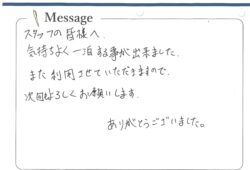 Message
スタッフの皆様へ
気持ちよく一泊する事が出来ました。
また利用させていただきますので、
次回もよろしくお願いします。
ありがとうございました。